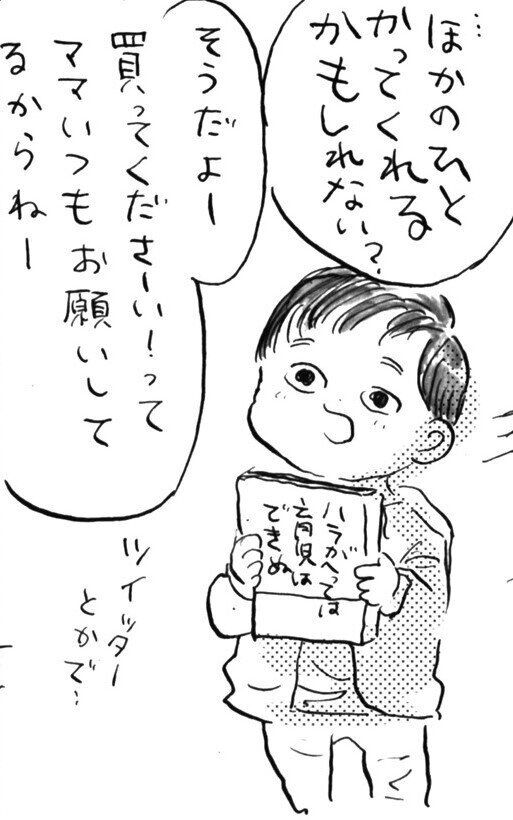 …ほかのひと
かってくれる
かもしれない?
そうだよー
買ってくださーい!って
ママいつもお願いして
るからねー
ハラがへっては
育児は
できぬ
ツイッター
とかで…